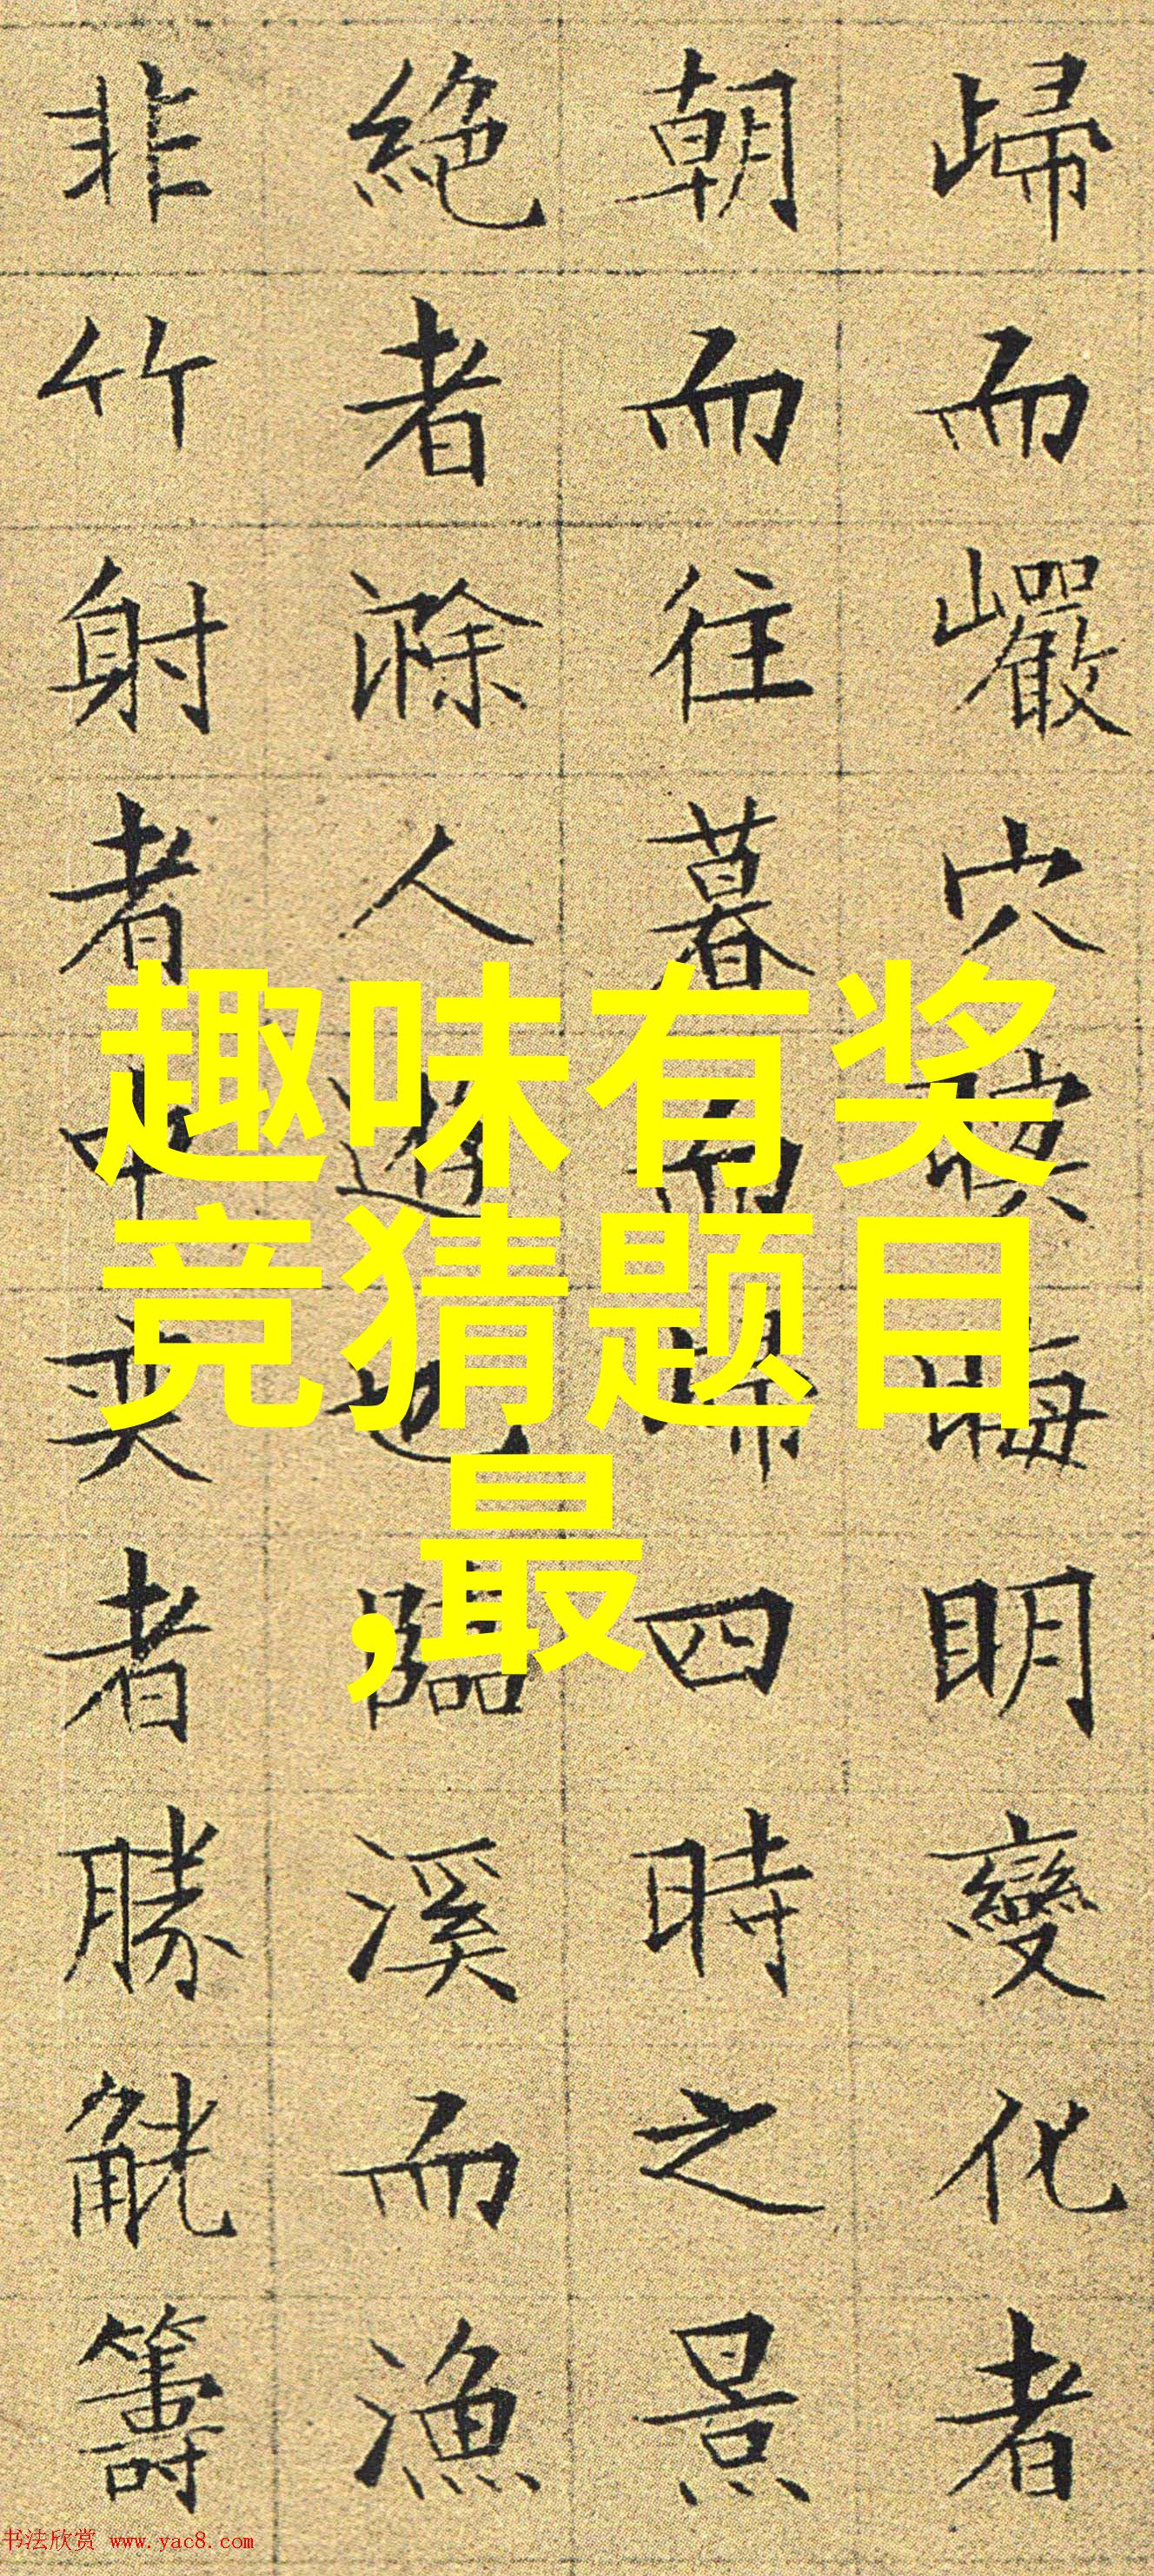 歸而巖穴暝晦明變化者
朝而往暮而歸四時之景
絕者滁人遊也臨溪而漁
非竹射者中奕者勝觥籌
趣味有奖
竞猜题目
,最
书法欣赏 www.yac8.com